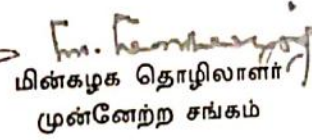 மின்கழக தொழிலாளர்
முன்னேற்ற சங்கம்